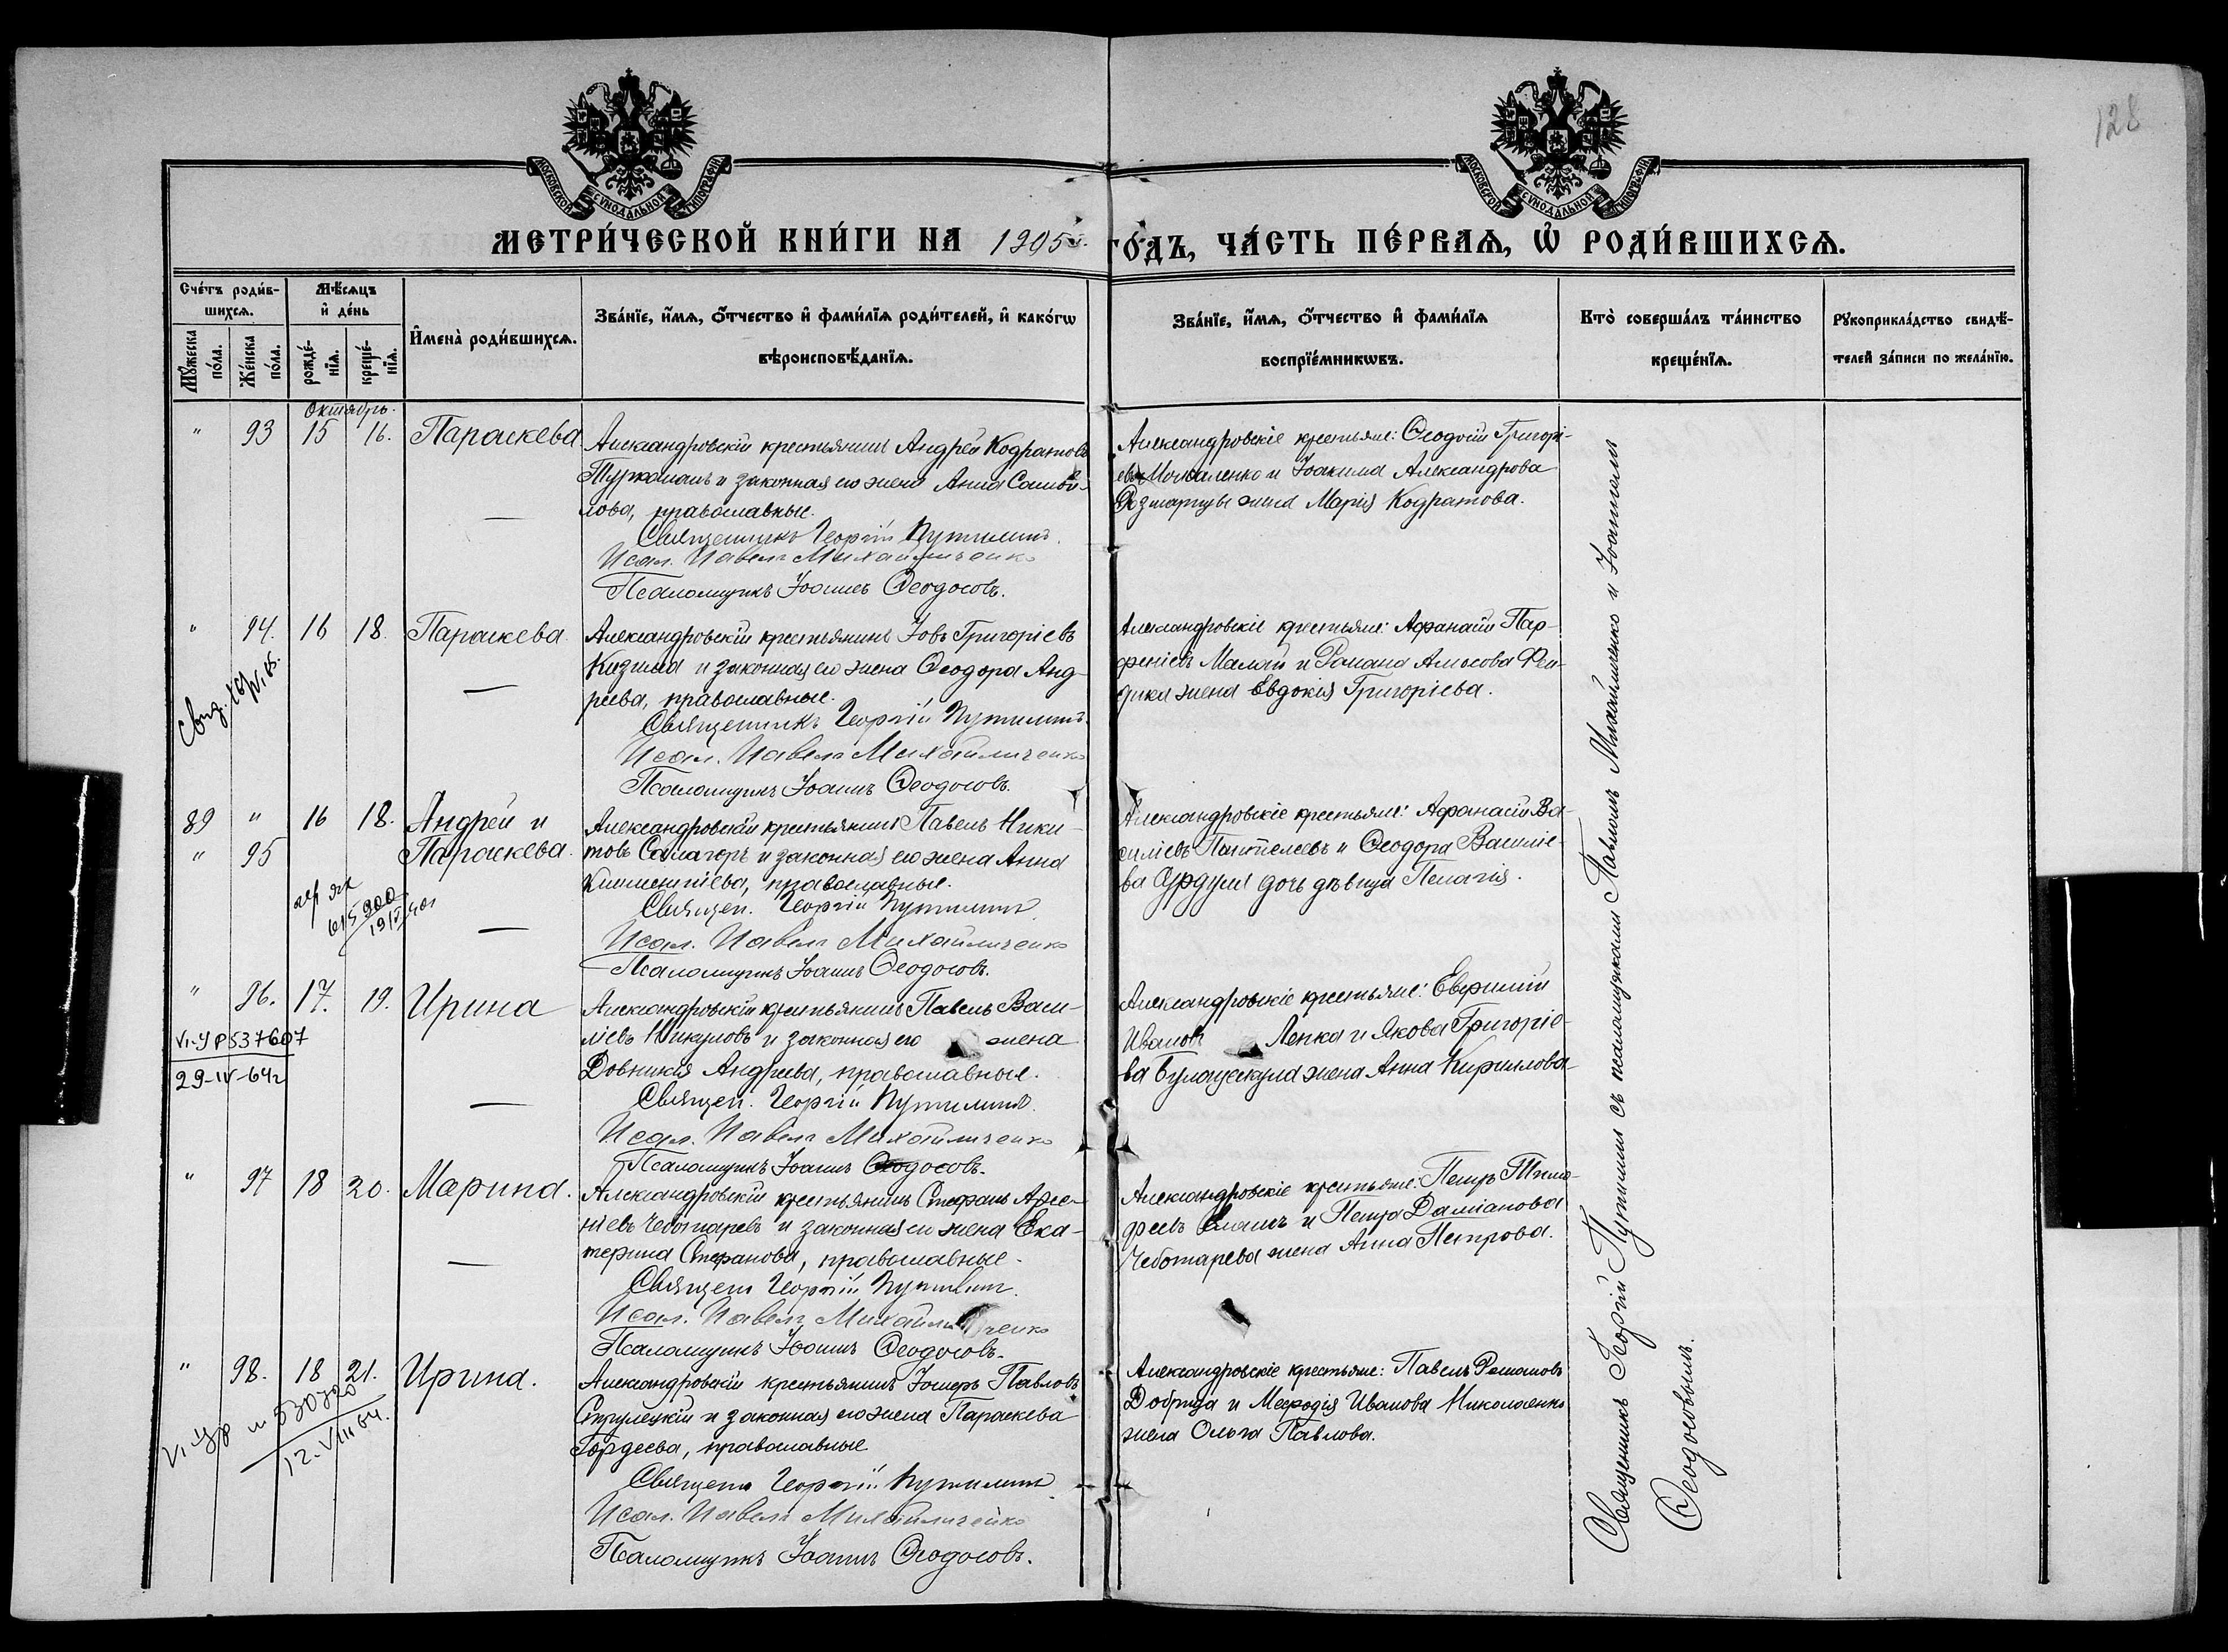 128
МОСКОВСКОЙ СѴНОДАЛЬНОЙ ТИПОГРАФІИ
МОСКОВСКОЙ СѴНОДАЛЬНОЙ ТИПОГРАФІИ
МЕТРИ́ЧЕСКОЙ КНИ́ГИ НА 1905 г. ГО́ДЪ, ЧА́СТЬ ПЕ́РВАѦ, Ѡ҆ РОДИ́ВШИХСѦ.
Сче́тъ роди́в-
шихсѧ.
Му́жеска по́ла.
Же́нска по́ла.
Мѣ́сѧцъ
и҆ де́нь
рожде́-
нїѧ.
креще́-
нїѧ.
И҆мена̀ роди́вшихсѧ.
Зва́нїе, и҆́мѧ, ѻ҆́тчество и҆ фами́лїѧ роди́телей, и҆ како́гѡ
вѣроисповѣ́данїѧ.
Зва́нїе, и҆́мѧ, ѻ҆́тчество и҆ фами́лїѧ
воспрїе́мникѡвъ.
Кто̀ соверша́лъ та́инство
креще́нїѧ.
Рꙋкоприкла́дство свидѣ́-
телей за́писи по жела́нїю.
Октябрь.
" 93 15 16. Параскева
Александровскій крестьянинъ Андрей Кодратовъ
Туржаманъ и законная его жена Анна Самой-
лова, православные.
Священникъ Георгій Путилинъ.
Псал. Павелъ Михайличенко
Псаломщикъ Іоаннъ Ѳеодосовъ.
Александровскіе крестьяне: Ѳеодосій Григорі-
евъ Москаленко и Іоакима Александрова
жена Марія Кодратова.
" 94. 16 18. Параскева.
Александровскій крестьянинъ Іовъ Григоріевъ
Казима и законная его жена Ѳеодора Анд-
реева, православные.
Священникъ Георгій Путилинъ.
Псал. Павелъ Михайличенко
Псаломщикъ Іоаннъ Ѳеодосовъ.
Александровскіе крестьяне: Афанасій Пар-
феніевъ Малай и Романа Амосова Фен-
дика жена Евдокія Григоріева.
89 " 16 18. Андрей и
" 95 Параскева.
Александровскій крестьянинъ Павелъ Ники-
товъ Салагоръ и законная его жена Анна
Климентіева, православные.
Священ. Георгій Путилинъ
Псал. Павелъ Михайличенко
Псаломщикъ Іоаннъ Ѳеодосовъ.
Александровскіе крестьяне: Афанасій Ва-
силіевъ Пантелеевъ и Ѳеодора Василіе-
ва Сурдула дочь дѣвица Пелагія.
" 96. 17. 19. Ирина
VI-УР 537607
29-IV-64г
Александровскій крестьянинъ Павелъ Васи-
ліевъ Никуловъ и законная его жена
Довникія Андреева, православные.
Священ. Георгій Путилинъ.
Псал. Павелъ Михайличенко
Псаломщикъ Іоаннъ Ѳеодосовъ.
Александровскіе крестьяне: Евфимій
Ивановъ Ленка и Якова Григоріе-
ва Булощескула жена Анна Кириллова
" 97 18 20. Марина.
Александровскій крестьянинъ Стефанъ Арсе-
ніевъ Чеботаревъ и законная его жена Ека-
терина Стефанова, православные.
Священ Георгій Путилинъ.
Псал. Павелъ Михайличенко
Псаломщикъ Іоаннъ Ѳеодосовъ.
Александровскіе крестьяне: Петръ Тимо-
феевъ и Петра Даміанова
Чеботарева жена Анна Петрова.
" 98. 18 21. Ирина.
12. VIII 64.
Александровскій крестьянинъ Іосифъ Павловъ
Струлецкій и законная его жена Параскева
Гордеева, православные
Священъ Георгій Путилинъ
Псал. Павелъ Михайличенко
Псаломщикъ Іоаннъ Ѳеодосовъ.
Александровскіе крестьяне: Павелъ Романовъ
Добрица и Мефодія Иванова Николаенко
жена Ольга Павлова.
Священникъ Георгій Путилинъ съ псаломщиками Павломъ Михайличенко и Іоанномъ
Ѳеодосовымъ.